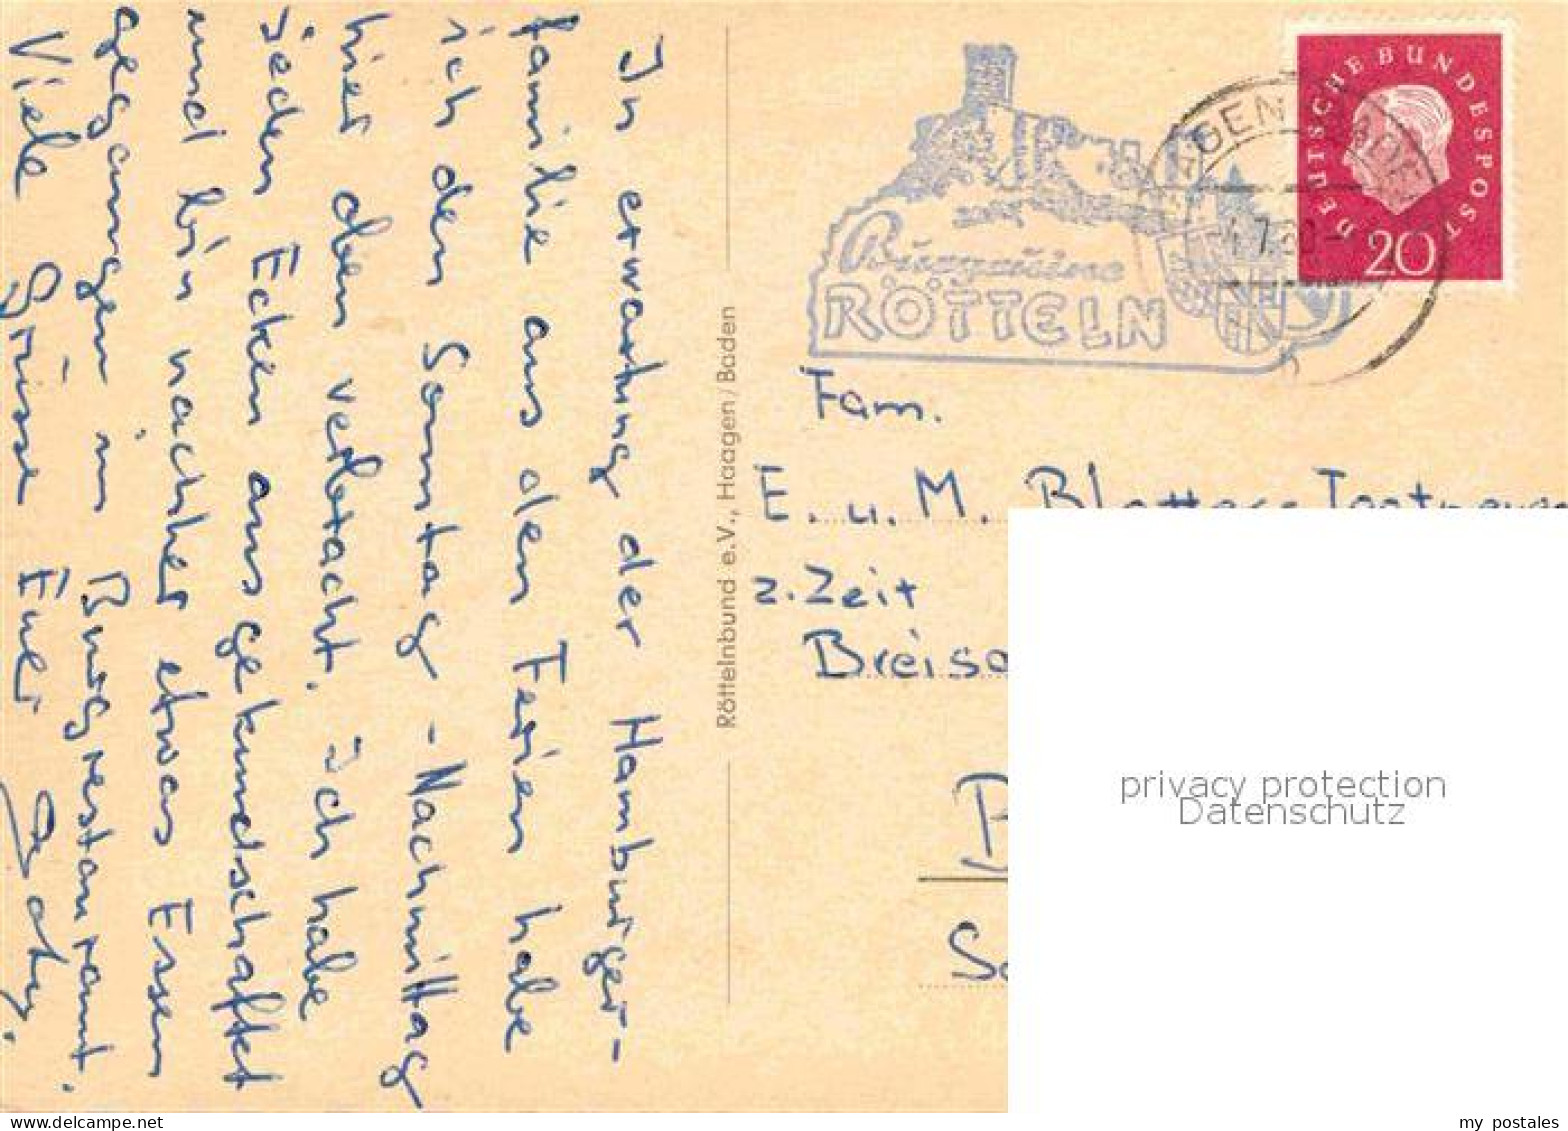 In erwartung der Hamburger-
familie aus den Ferien habe
ich den Sonntag - Nachmittag
hier oben verbracht. Ich habe
jeden Ecken ausgekundschaftet
und bin nachher etwas Essen
gegangen im Burgrestaurant.
Viele Grüsse Euer
Röttelnbund e.V., Haagen/Baden
Burgruine
RÖTTELN
DEUTSCHE BUNDESPOST
20
Fam.
E. u. M.
z. Zeit
privacy protection
Datenschutz
my_postales